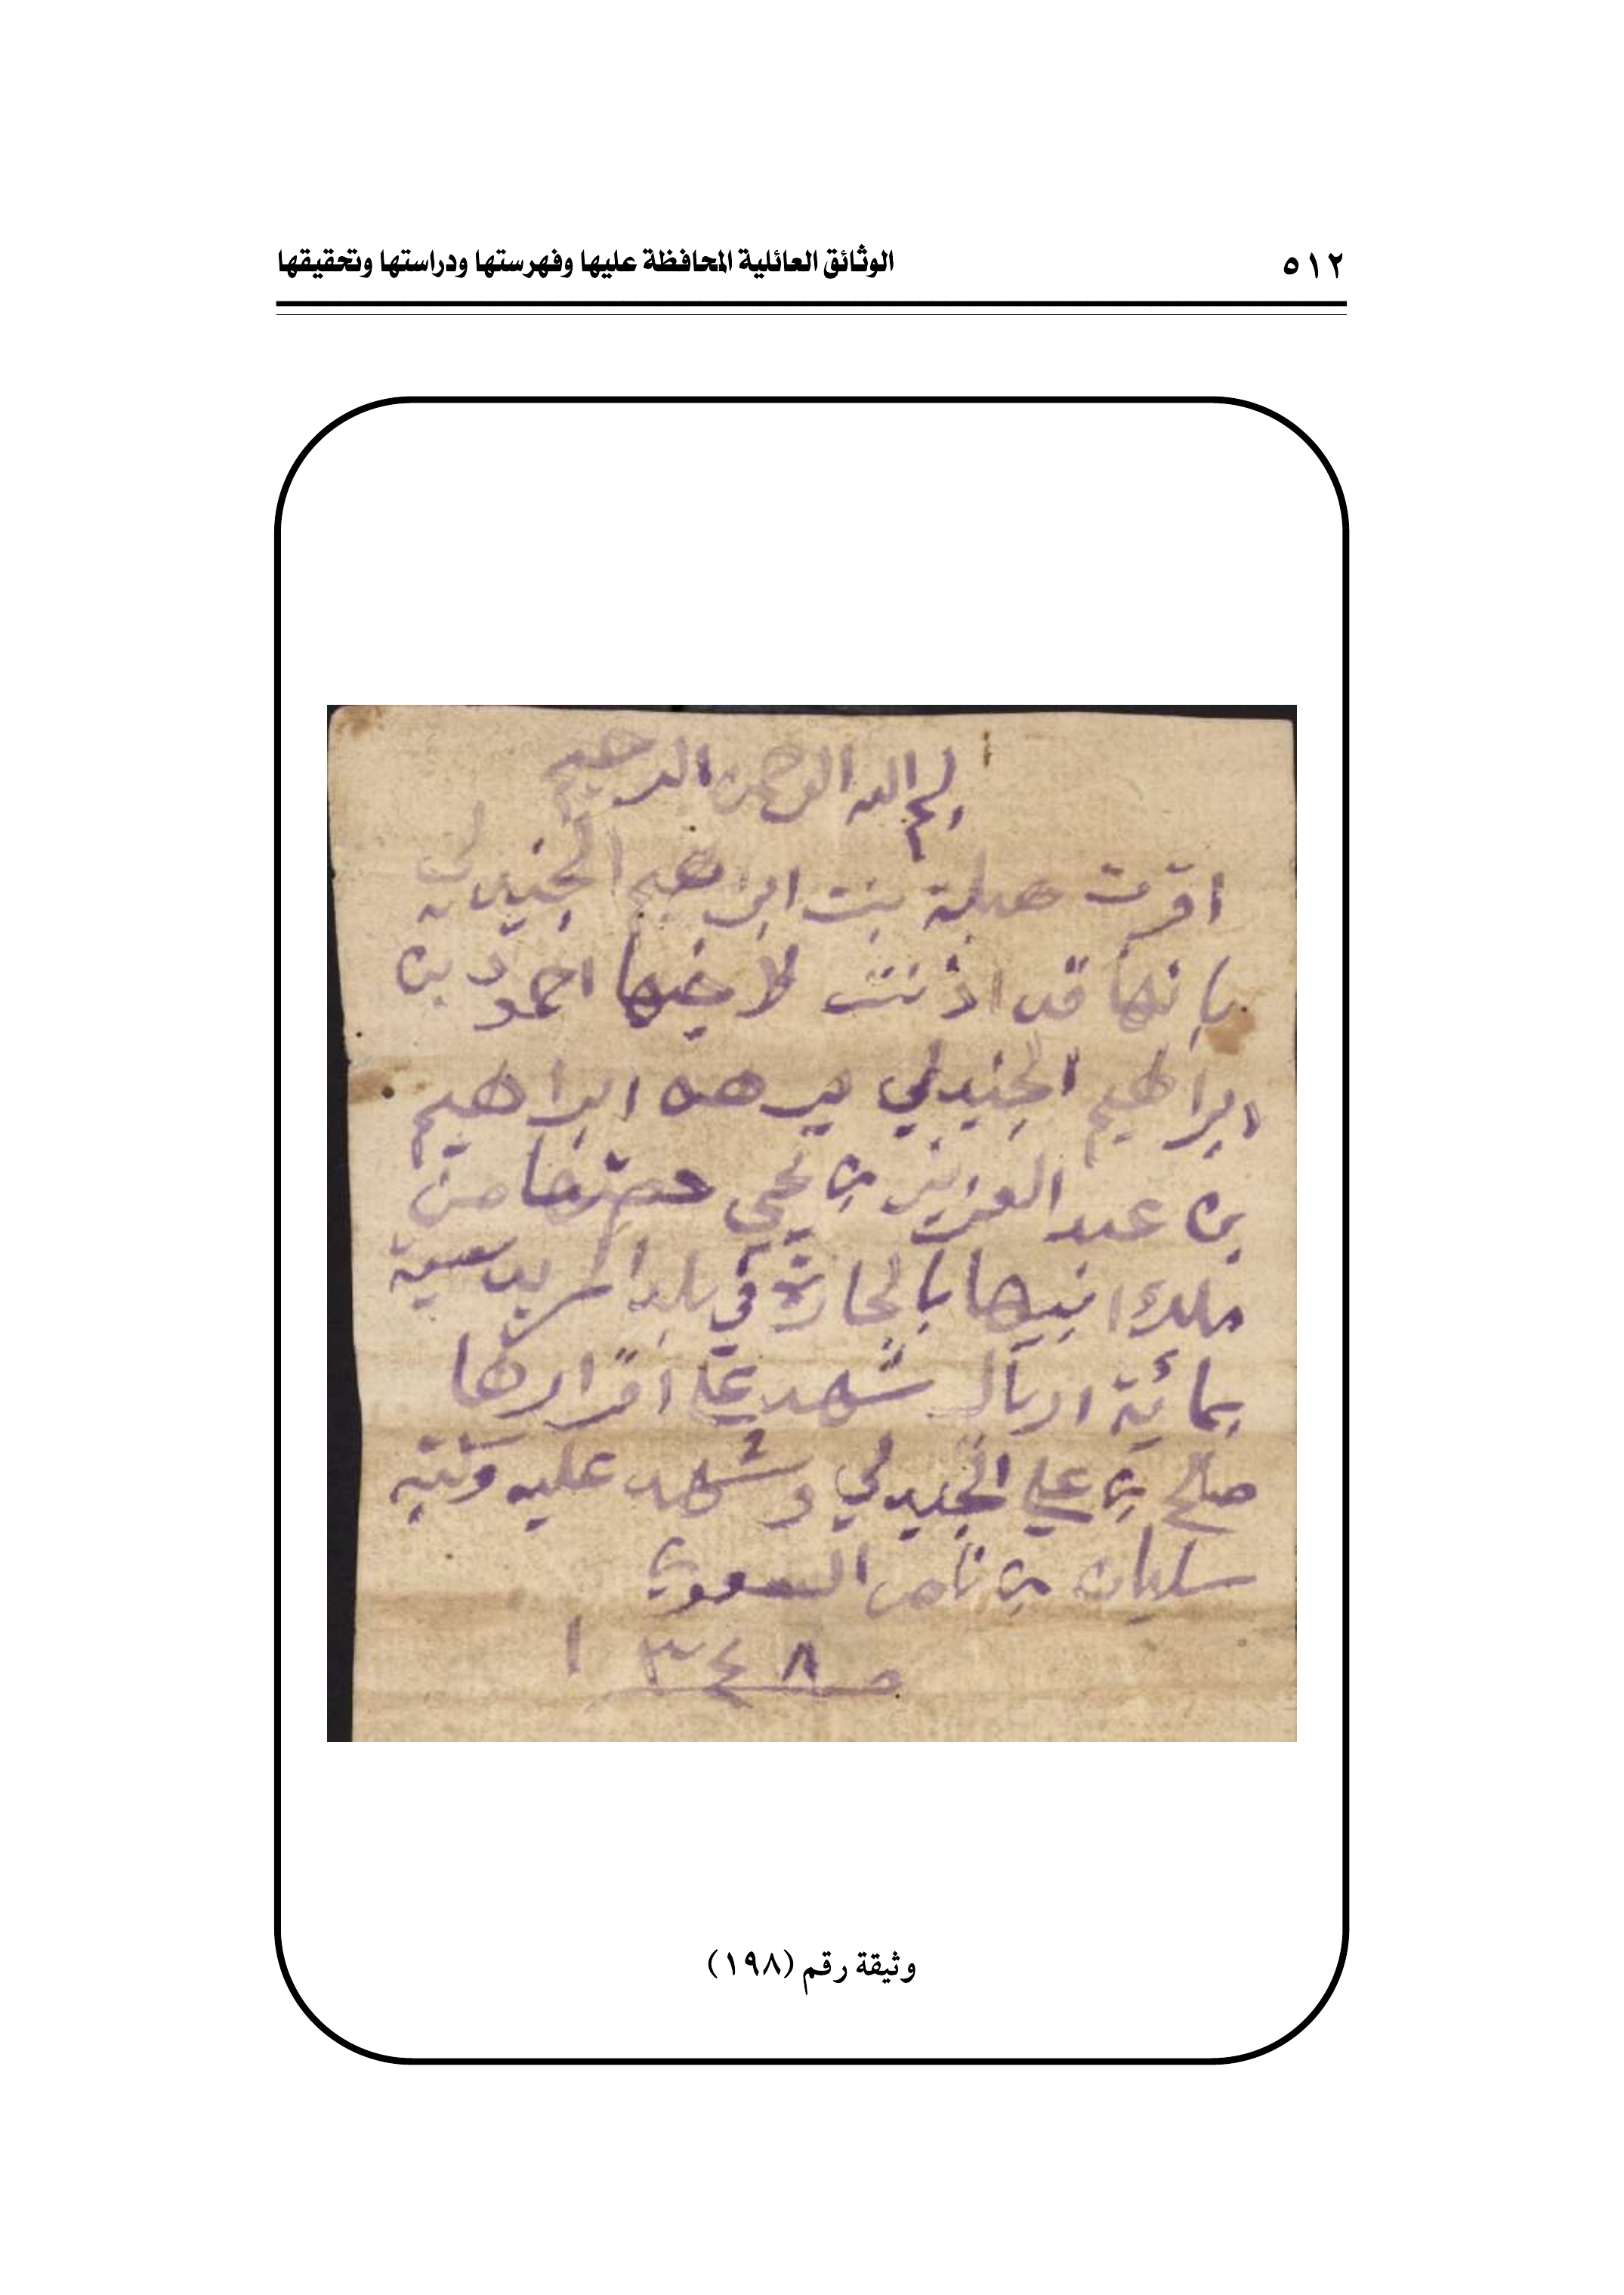 ٥١٢
الوثائق العائلية المحافظة عليها وفهرستها ودراستها وتحقيقها
بسم الله الرحمن الرحيم
اقرت هيلة بنت ابراهيم الجنيدلي
بانها قد اذنت لاخيها احمد بن
ابراهيم الجنيدلي يرهن ابراهيم
بن عبد العزيز بن يحيى حصتها من
ملك ابيها بالحارة في بلد المريدسية
بمائية اريال شهد على اقرارها
صالح بن علي الجنيدلي وشهد عليه وكتبه
سليمان بن ناصر السعوي
١٣٤٨
وثيقة رقم (١٩٨)